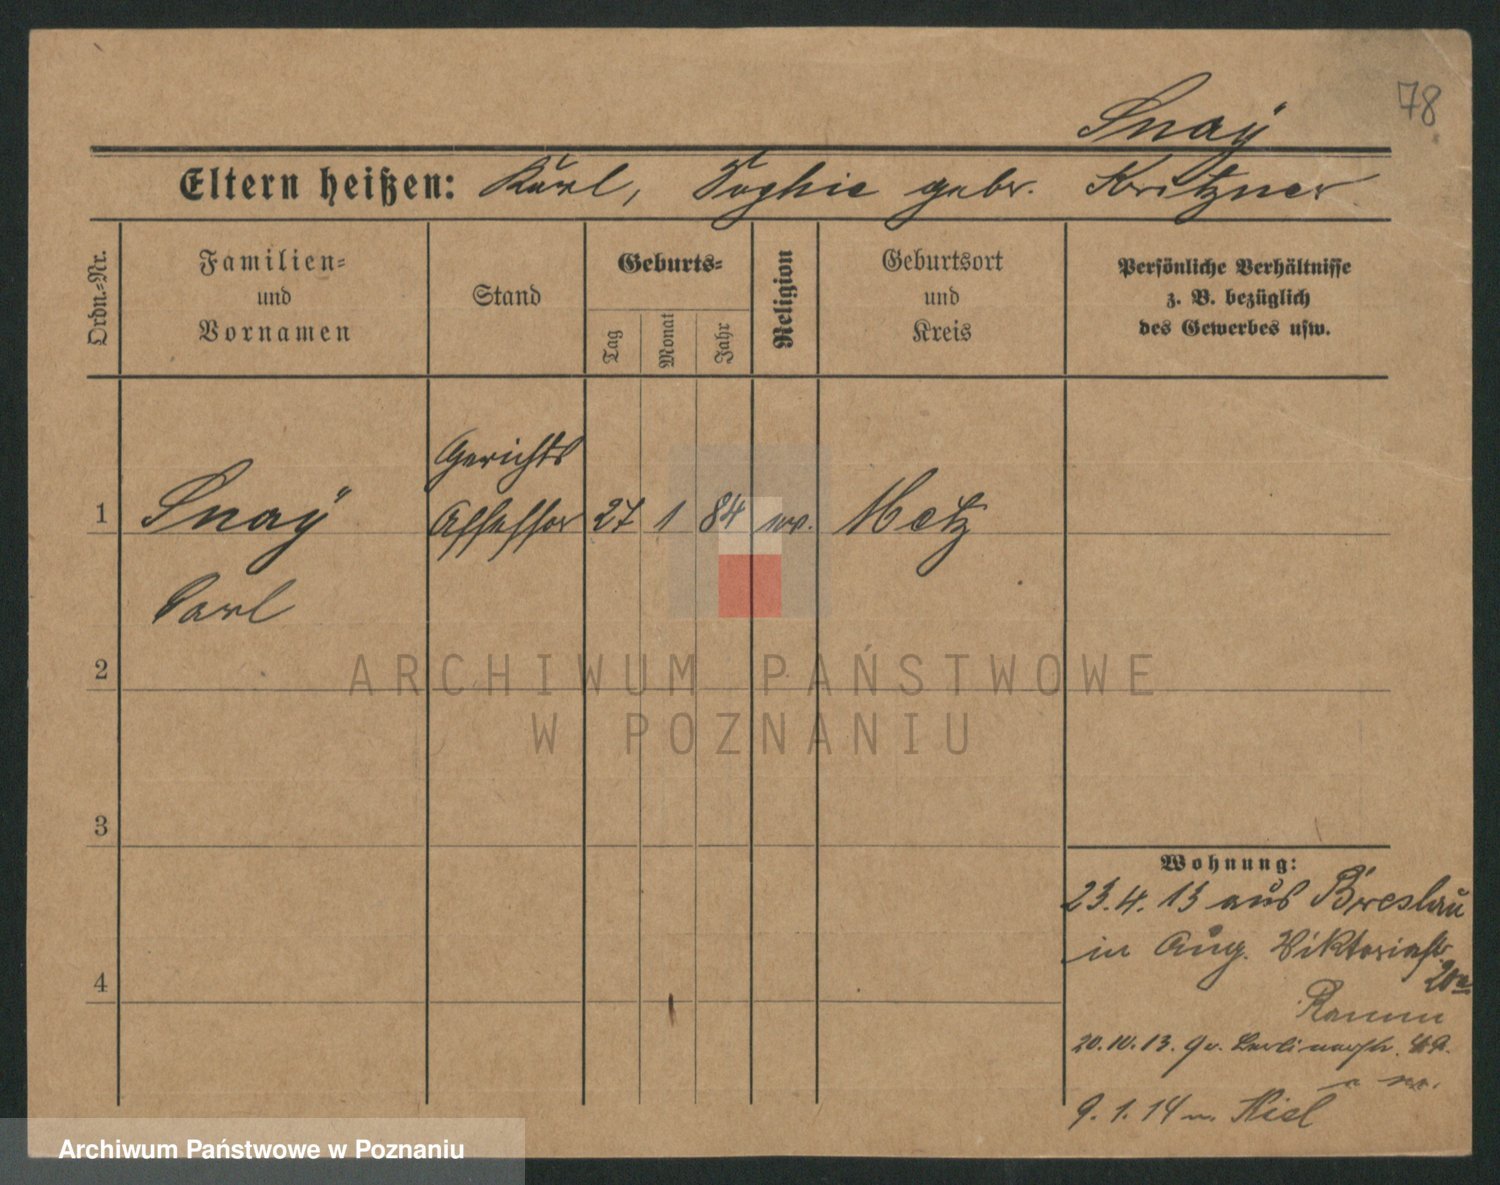 78
Snaÿ
Eltern heißen: Karl, Sophie gebr. Kritzner
Ordn.-Nr.
Familien-
und
Vornamen
Stand
Geburts-
Tag
Monat
Jahr
Religion
Geburtsort
und
Kreis
Persönliche Verhältnisse
z. B. bezüglich
des Gewerbes usw.
Gerichts
1 Snaÿ Assessor 27 1 84 Metz
Carl
2
ARCHIWUM PAŃSTWOWE
W POZNANIU
3
Wohnung:
23.4.13 aus Breslau
in Aug. Viktoriast.
20a
4
20.10.13. Berlinerstr.
9.1.14 n. Kiel
Archiwum Państwowe w Poznaniu